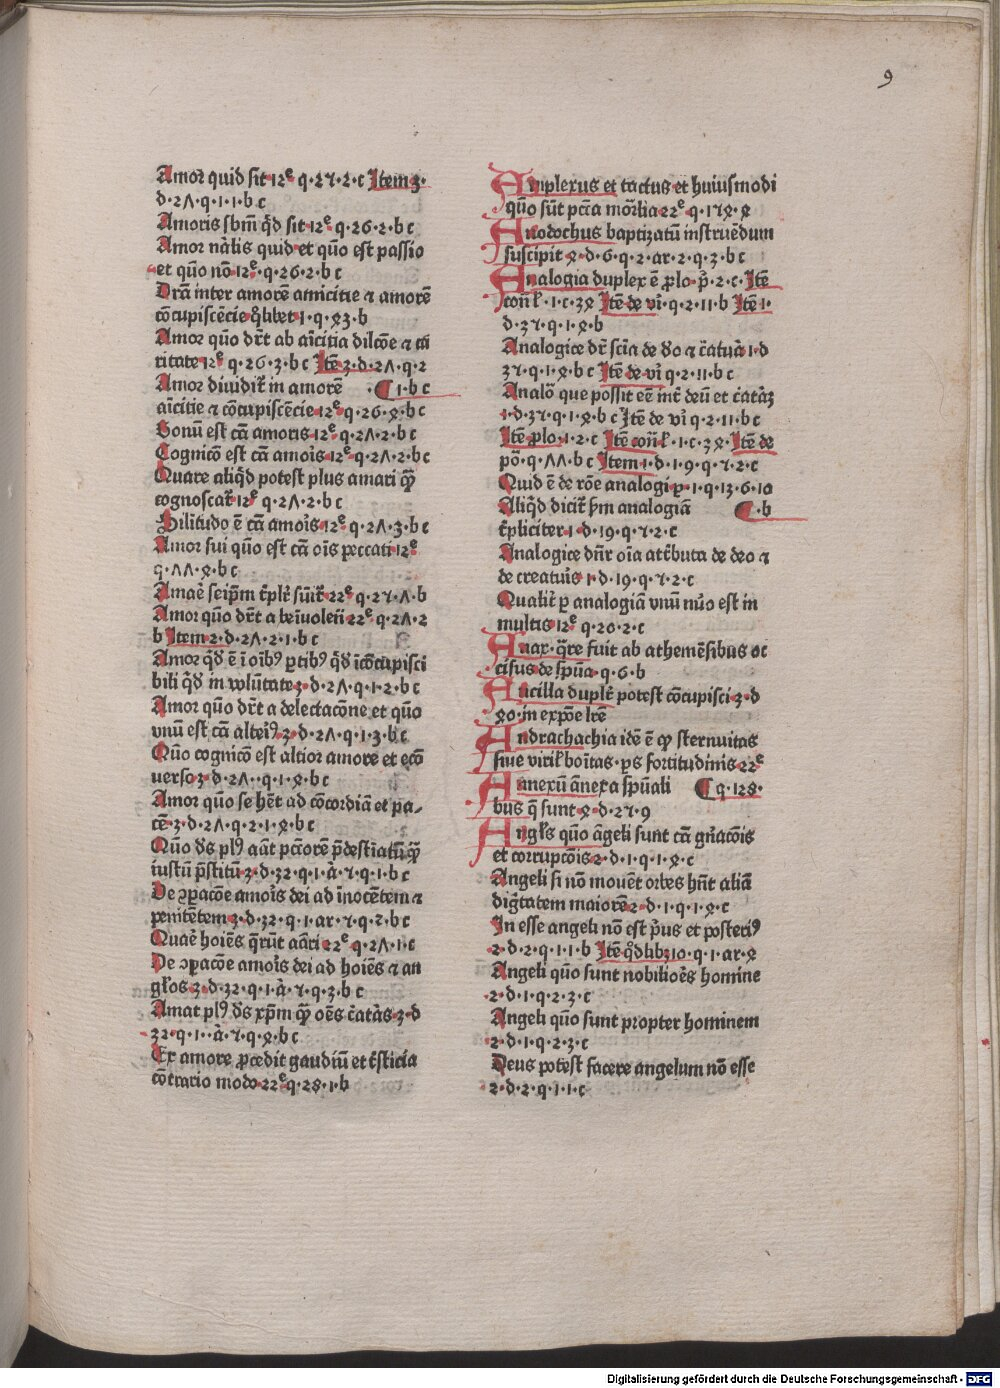 9
Amor quid sit 12ᵉ q·27·2·c Item 3·
d·27·q·1·1·b c
Amoris sbm̄ qd̄ sit 12ᵉ q·26·2·b c
Amor nālis quid et quō est passio
et quō nō 12ᵉ·q·26·2·b c
Dr̄a inter amorē amicitie ⁊ amorē
cōcupiscēcie q̄libet 1·q·43·b
Amor quō dr̄t ab aīcitia dilcōe ⁊ cā
ritate 12ᵉ q·26·3·b c Itē 3·d·27·q·2
Amor diuidit̄ in amorē ·¶ 1·b c
aīcitie ⁊ cōcupiscēcie 12ᵉ·q·26·4·b c
Bonū est cā amoris 12ᵉ·q·27·2·b c
Cognicō est cā amoīs 12ᵉ q·27·2·b c
Quare aliqd̄ potest plus amari qꝫ̄
cognoscat̄ 12ᵉ q·27·2·b c
Silitudo ē cā amoīs 12ᵉ q·27·3·b c
Amor sui quō est cā oīs peccati 12ᵉ
q·77·4·b c
Amaē seipm̄ tp̄lr̄ sūit̄ 22ᵉ q·25·7·b
Amor quō dr̄t a beīuolen̄ 22ᵉ q·27·2
b Item 2·d·27·2·1·b c
Amor qd̄ ē ī oībꝰ ꝑtibꝰ qd̄ īcōcupisci
bili qd̄ in volūtate 3·d·27·q·1·2·b c
Amor quō dr̄t a delectacōne et quō
vnū est cā alteiꝰ 3·d·27·q·1·3·b c
Quō cognicō est altior amore et ecō
uerso 3·d·27··q·1·4·b c
Amor quō se het̄ ad cōcordiā et pa-
cē 3·d·27·q·2·1·4·b c
Quō ds̄ plꝰ aāt pctōrē p̄destīatū qꝫ̄
iustū p̄stitū 3·d·32·q·1·ā·5·q·1·b c
De ꝯꝑacōe amoīs dei ad īnocētem ⁊
penitētem 3·d·32·q·1·ar·5·q·2·b c
Quaē hoiēs q̄rūt aāri 22ᵉ q·27·1·c
De ꝯꝑacōe amoīs dei ad hoiēs ⁊ an
gl̄os 3·d·32·q·1·ā·5·q·3·b c
Amat plꝰ ds̄ xp̄m qꝫ̄ oēs c̄atās 3·d
32·q·1··ā·5·q·4·b c
Ex amore ꝓcedit gaudiū et t̄sticia
cōtrario modo 22ᵉ q·28·1·b
Amplexus et tactus et huiusmodi
quō sūt pctā mōrlia 22ᵉ q·154·4
Anodochus baptizatū instruēdum
suscipit 4·d·6·q·2·ar·2·q·3·b c
Analogia duplex ē ꝓlo·p̄·2·c·Itē
con̄t̄·1·c·34 Itē de vī·q·2·11·b Itē 1·
d·35·q·1·4·b
Analogice dr̄ sciā de do ⁊ c̄atuā 1·d
35·q·1·4·b c Itē de vī q·2·11·b c
Analō que possit eē int̄ deū et c̄atāꝫ
1·d·35·q·1·4·b c Itē de vī q·2·11·b c
Itē ꝓlo·1·2·c Itē con̄t̄·1·c·34·Itē de
pō·q·77·b c Item 1·d·19·q·5·2·c
Quid ē de rōe analogi ꝑ·1·q·13·6·10
Aliqd̄ dicit̄ ẜm analogiā ¶·b
tp̄liciter 1·d·19·q·5·2·c
Analogice dn̄r oīa att̄buta de deo ⁊
de creatuīs 1·d·19·q·5·2·c
Qualit̄ ꝑ analogiā vnū nūo est in
multis 12ᵉ q·20·2·c
Anax·q̄re fuit ab athemēsibus oc
cisus de sp̄uā·q·6·b
Ancilla duplr̄ potest cōcupisci 3·d
40·in expōe lr̄e
Andrachachia idē ē qꝫ sternuitas
siue viril̄ boītas·ꝑs fortitudinis 22ᵉ
Annexū ānexa sp̄uali ¶ q·128·
bus q̄ sunt 4·d·25·9
Angl̄s quō āgeli sunt cā gn̄acōis
et corrupcōis 2·d·1·q·1·4·c
Angeli si nō mouēt orbes hn̄t aliā
dig̅tatem maiorē 2·d·1·q·1·4·c
In esse angeli nō est p̄us et posteriꝰ
2·d·2·q·1·1·b Itē qd̄lib 10·q·1·ar·4
Angeli quō sunt nobilioēs homine
2·d·1·q·2·3·c
Angeli quō sunt propter hominem
2·d·1·q·2·3·c
Deus potest facere angelum nō esse
2·d·2·q·1·1·c
Digitalisierung gefördert durch die Deutsche Forschungsgemeinschaft - DFG